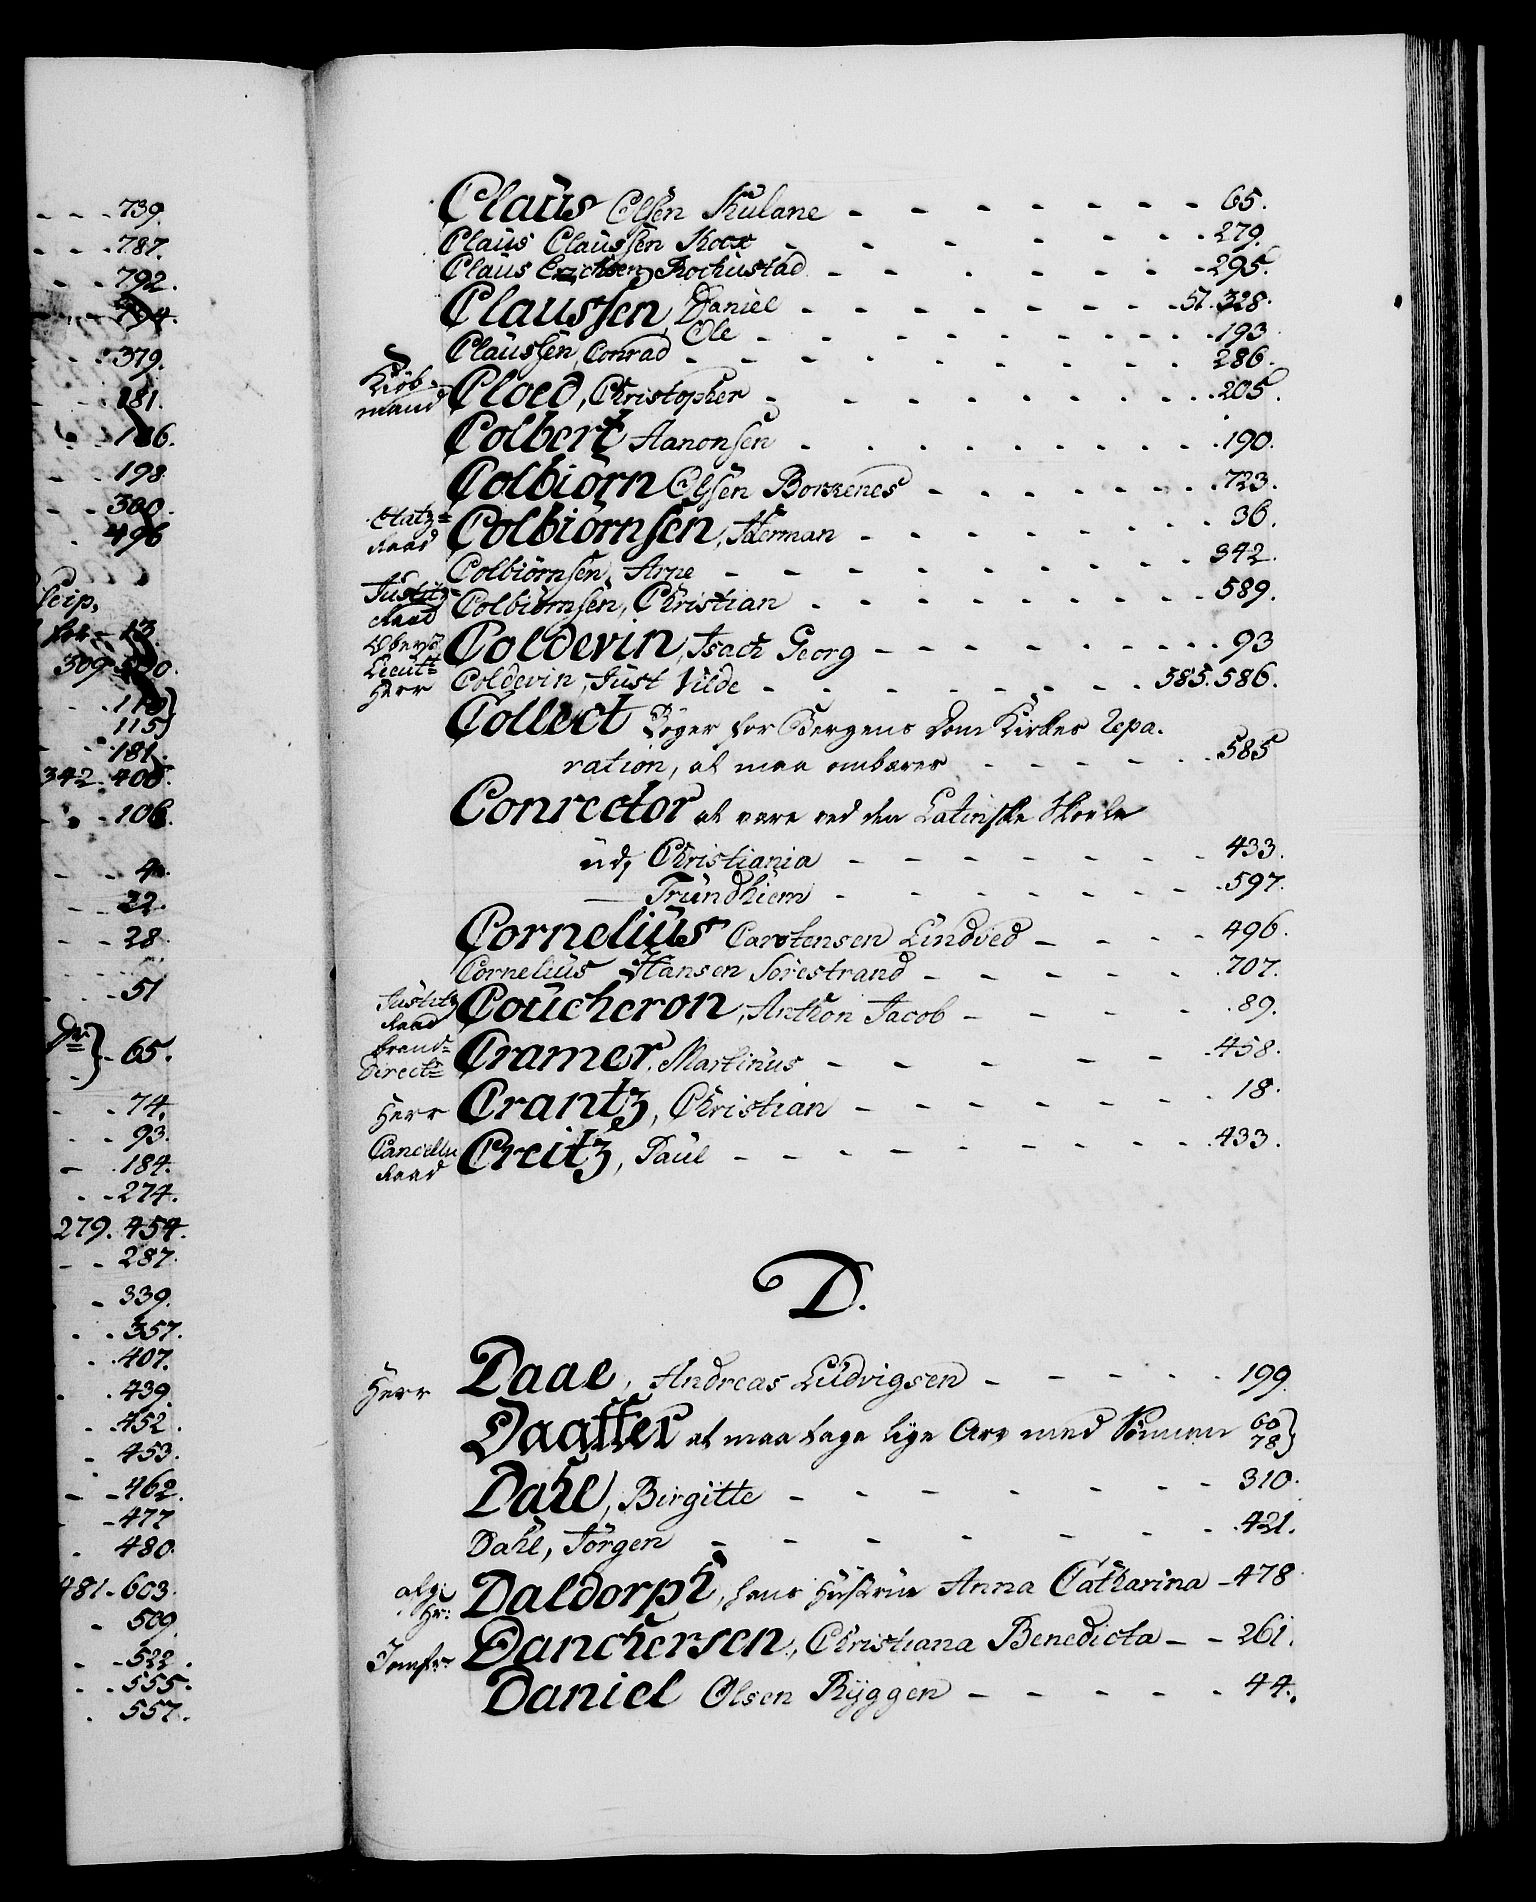 739.
787.
792.
794.
379.
181.
186.
198
300.
496
Leip,
13.
309
115)
181.
342. 400.
106.
4.
22.
28.
51
65.
74.
93.
184.
274.
279. 454.
287.
339.
357.
407.
439.
452.
453.
462.
477
480.
481-603.
509
522.
555.
557.
Claus Olsen Skulane - - - - - - - 65.
Claus Claussen Koox - - - - - - - 279.
Claus Erichsen Rochustad - - - - - - - 295.
Claussen, Daniel - - - - - - - 51. 328.
Ole - - - - - - - 193
Claussen, Conrad - - - - - - - 286.
Kiöb-
mand Cloed, Christopher - - - - - - - 205.
Colbert Aanonsen - - - - - - - 190.
Colbiörn Olsen Borrenes - - - - - - - 723.
Etatz=
Raad Colbiörnsen, Herman - - - - - - - 36.
Colbiörnsen, Arne - - - - - - - 342.
Justitz=
Raad Colbiörnsen, Christian - - - - - - - 589.
Oberst
Lieut= Coldevin, Isach Georg - - - - - - - 93
Herr Coldevin, Just Vilde - - - - - - - 385. 586.
Collect Bøger for Bergens Dom Kirkes Repa-
ration, at maa ombæres - - - - - 585
Conrector at være ved den Latinske Skoele
udj Christiania - - - - - - - 433.
— Trundhiem - - - - - - - 597.
Cornelius Carstensen Lindved - - - - 496.
Cornelius Hansen Sörestrand - - - - - 707.
Justitz
Raad Coucheron, Anthon Jacob - - - - - 89.
Brand=
Direct= Cramer, Martinus - - - - - - 458.
Herr Crantz, Christian - - - - - - - 18.
Cancellie
Raad Creitz, Paul - - - - - - - 433.
D.
Herr Daae, Andreas Ludvigsen - - - - - 199
Daatter at maa tage lige Arv med Sönnen 60
78}
Dahl, Birgitte - - - - - - - 310.
Dahl, Jörgen - - - - - - - 421.
afg:
Hr: Daldorph, hans Hustrue Anna Catharina - 478
Jomfr: Danchersen, Christiana Benedicta - - 261.
Daniel Olsen Ryggen - - - - - 44.